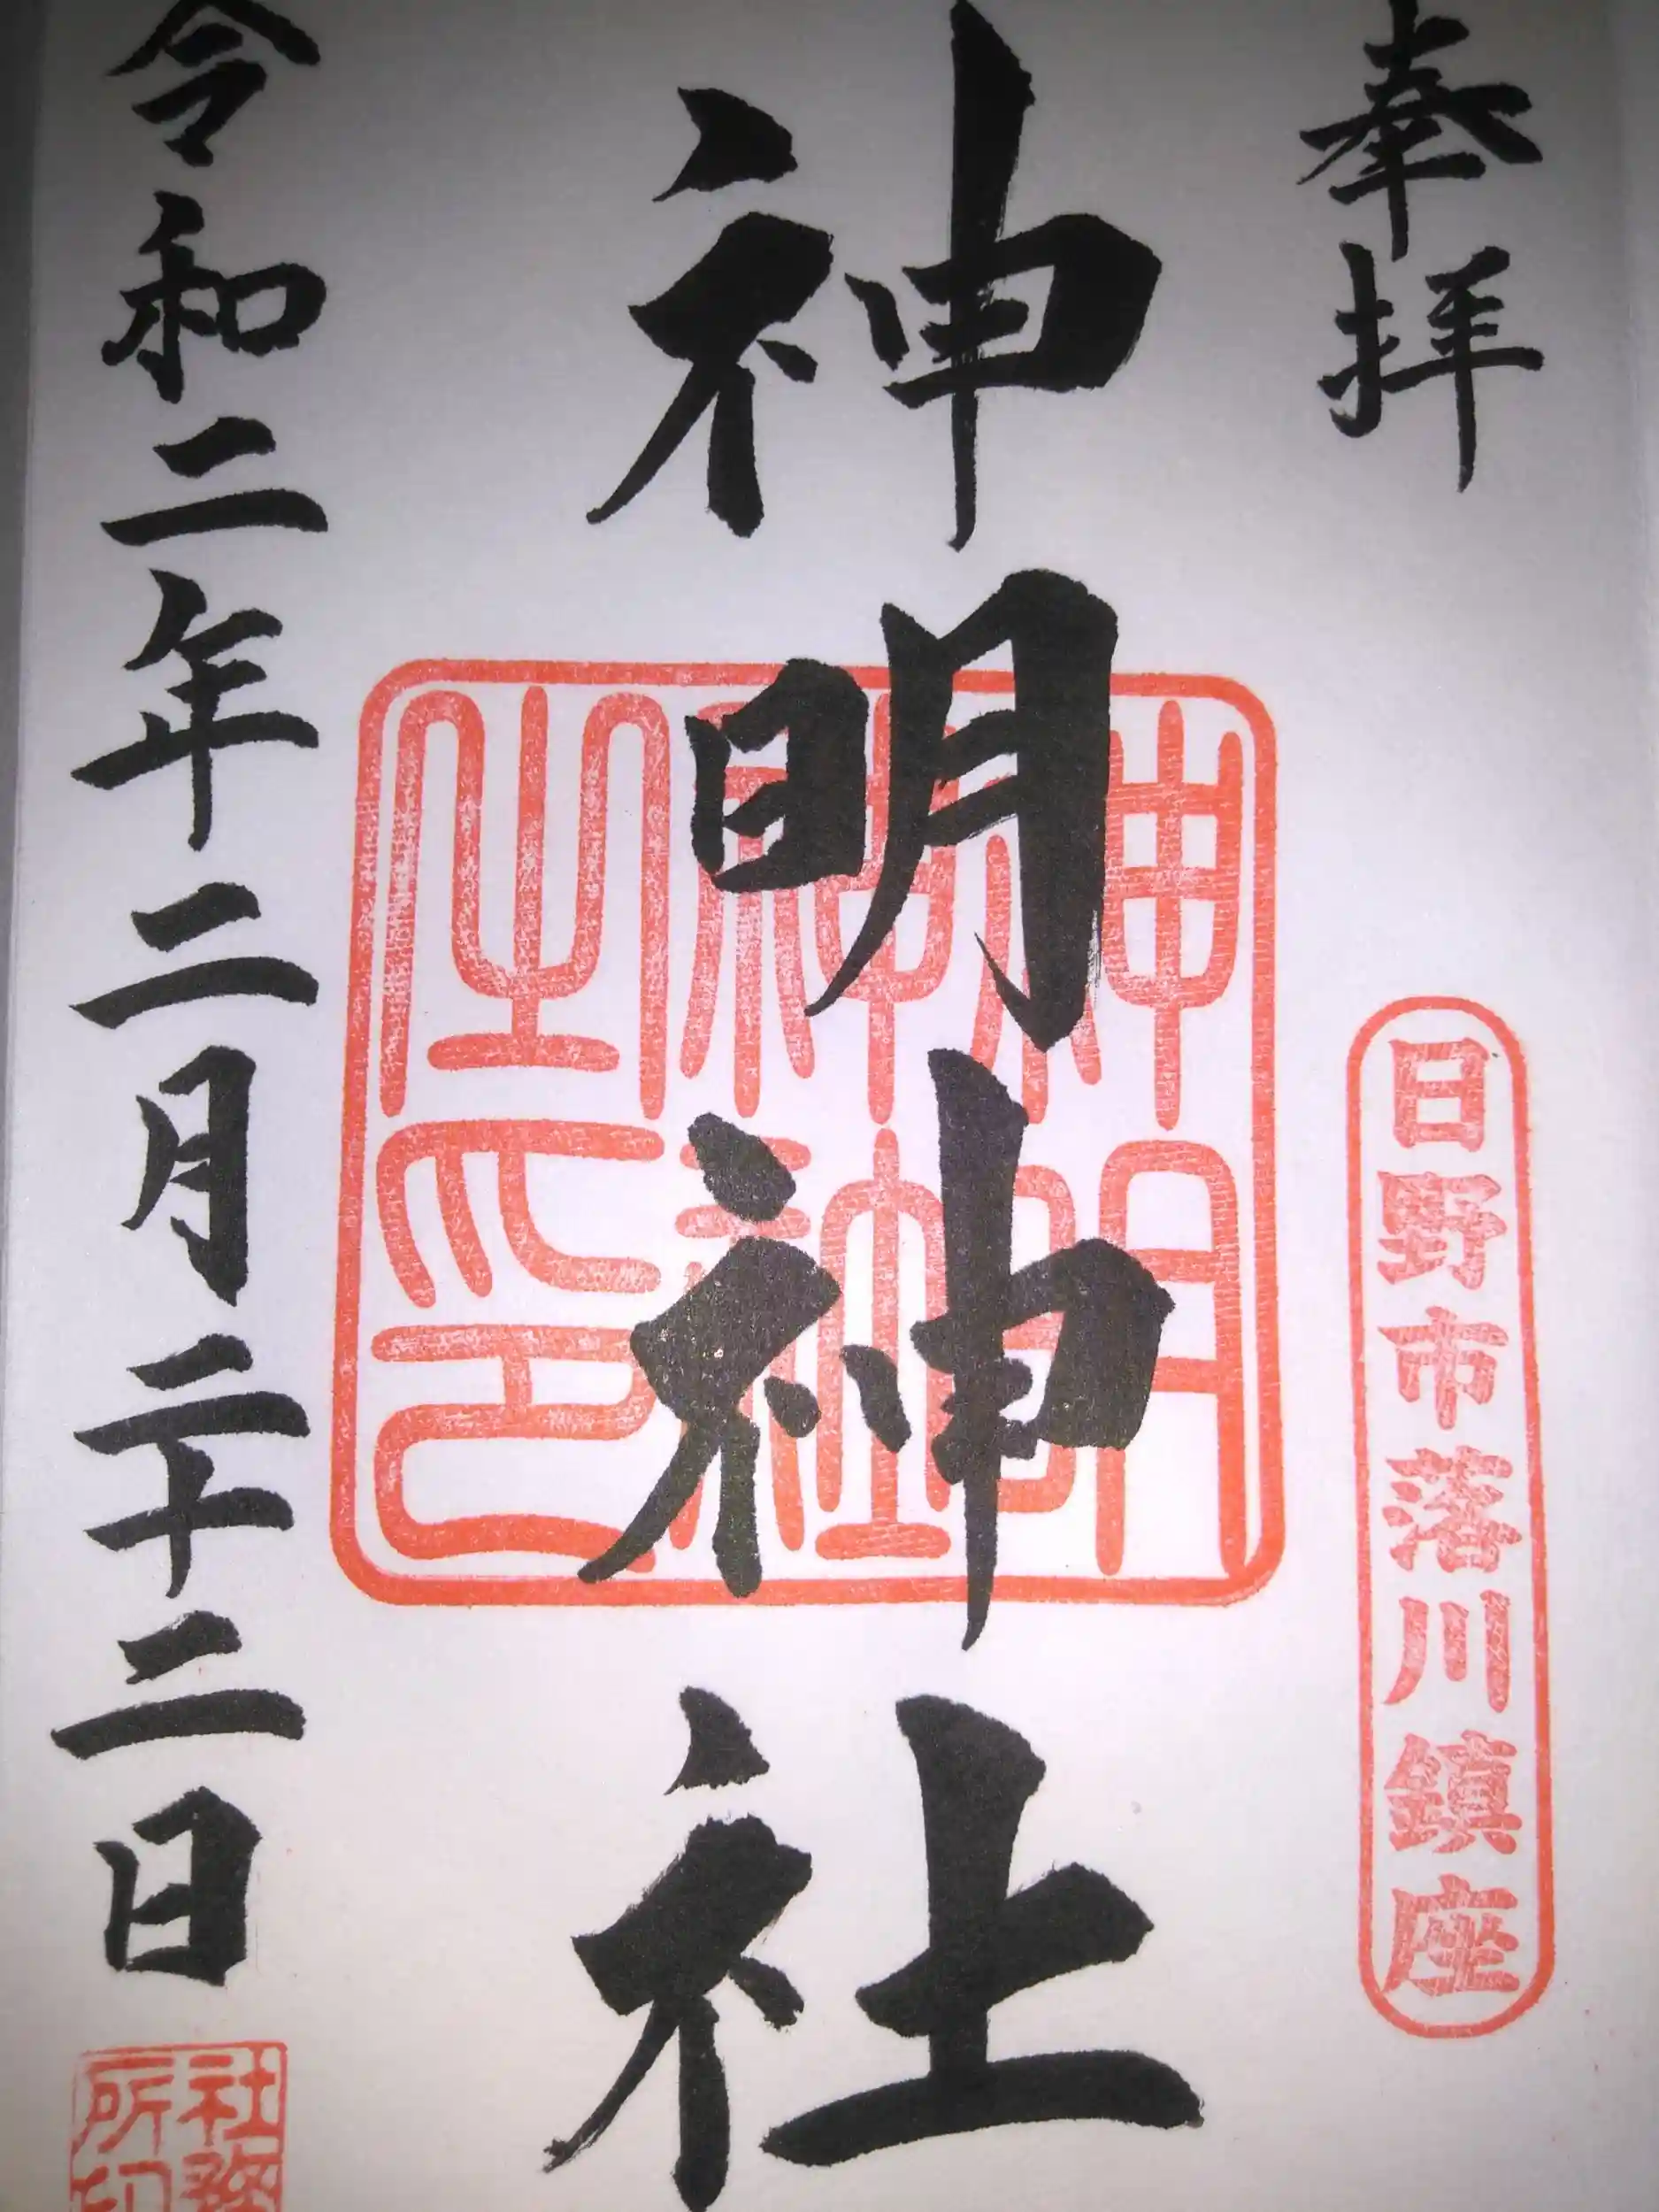 奉拝
日野市落川鎮座
神明神社
神明神社之印
令和二年二月二十二日
社務所印